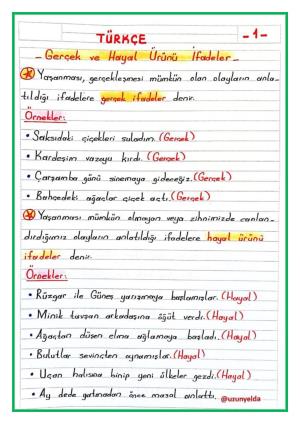 TÜRKÇE
-1-
- Gerçek ve Hayal Ürünü İfadeler -
Yaşanması, gerçekleşmesi mümkün olan olayların anla-
tıldığı ifadelere gerçek ifadeler denir.
Örnekler:
• Saksıdaki çiçekleri suladım. (Gerçek)
• Kardeşim vazoyu kırdı. (Gerçek)
• Çarşamba günü sinemaya gideceğiz. (Gerçek)
• Bahçedeki ağaçlar çiçek açtı. (Gerçek)
Yaşanması mümkün olmayan veya zihnimizde canlan-
dırdığımız olayların anlatıldığı ifadelere hayal ürünü
ifadeler denir.
Örnekler:
• Rüzgar ile Güneş yarışmaya başlamışlar. (Hayal)
• Minik tavşan arkadaşına öğüt verdi. (Hayal)
• Ağaçtan düşen elma ağlamaya başladı. (Hayal)
• Bulutlar sevinçten oynamışlar. (Hayal)
• Uçan halısına binip yeni ülkeler gezdi. (Hayal)
• Ay dede yatmadan önce masal anlattı. @uzunyelda